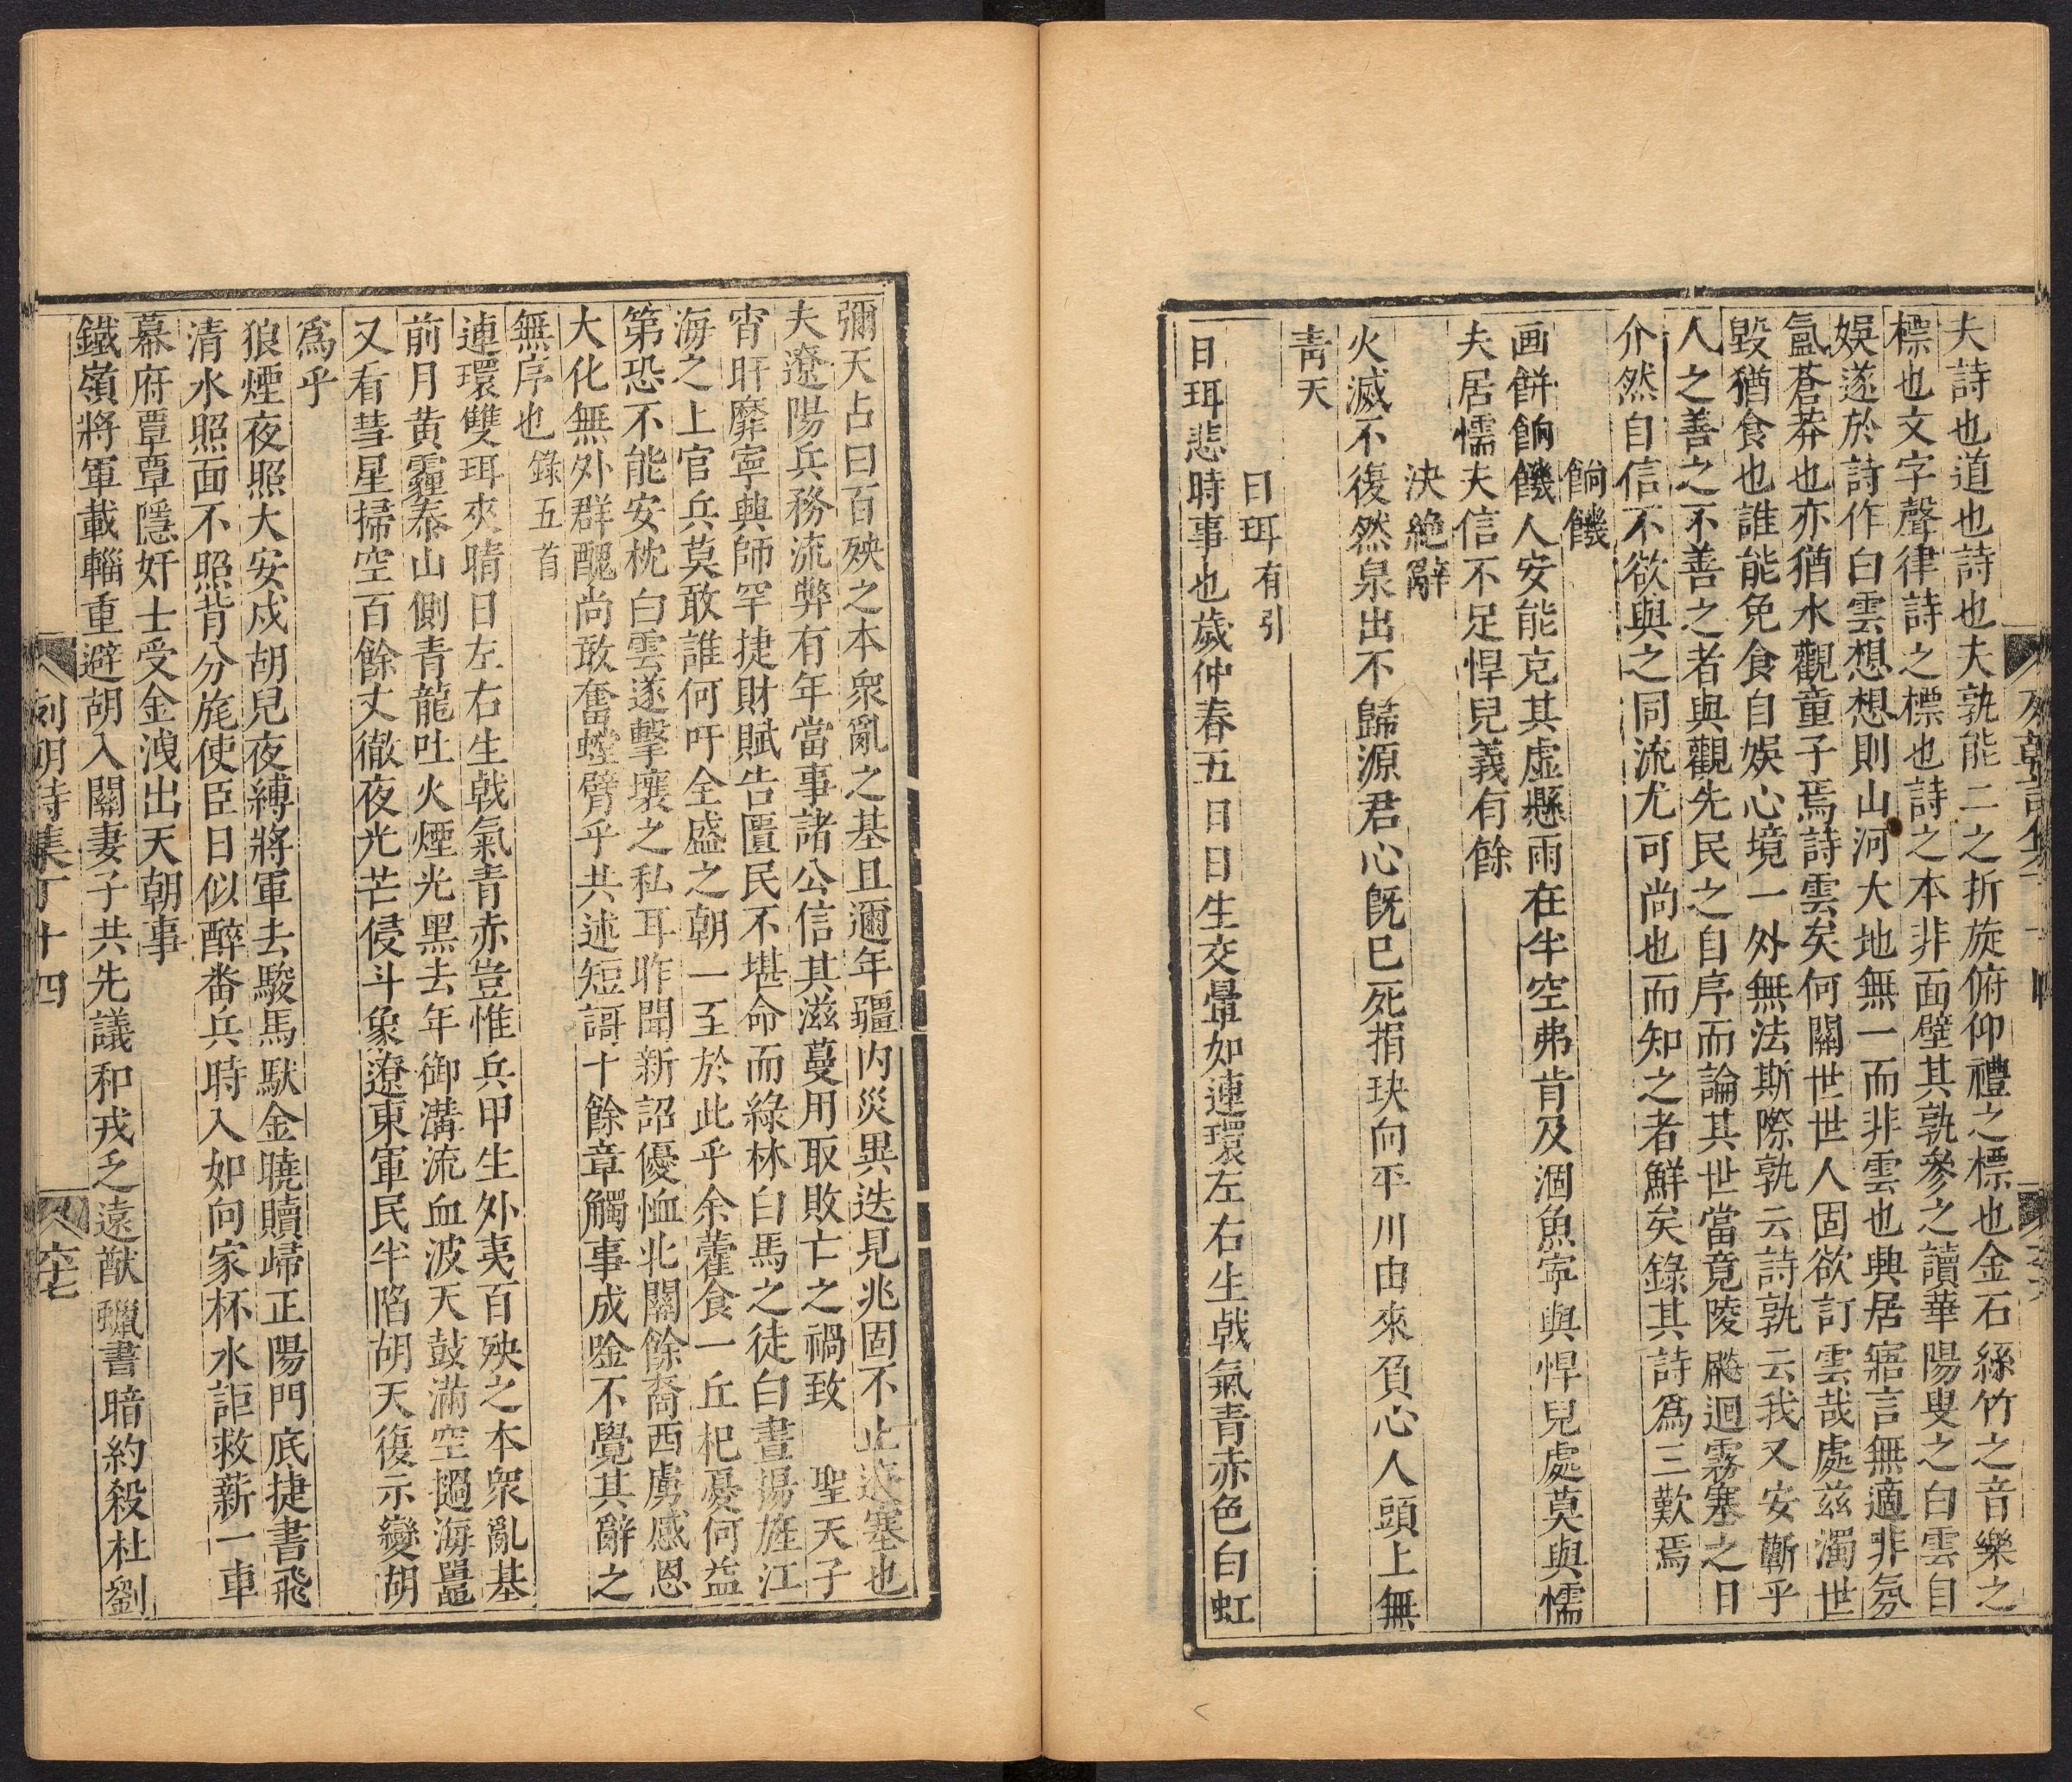 夫詩也道也詩也夫孰能二之折旋俯仰禮之標也金石絲竹之音樂之
標也文字聲律詩之標也詩之本非面壁其孰參之讀華陽叟之白雲自
娛遂於詩作白雲想想則山河大地無一而非雲也興居寤言無適非氛
氳蒼莽也亦猶水觀童子焉詩雲矣何關世世人固欲訂雲哉處茲濁世
毀猶食也誰能免食自娛心境一外無法斯際孰云詩孰云我又安蘄乎
人之善之不善之者與觀先民之自序而論其世當竟陵飈迴霧塞之日
介然自信不欲與之同流尤可尚也而知之者鮮矣錄其詩爲三歎焉
餉饑
画餅餉饑人安能克其虛懸雨在半空弗肯及涸魚寧與悍兒處莫與懦
夫居懦夫信不足悍兒義有餘
決絶辭
火滅不復然泉出不歸源君心旣已死捐玦向平川由來負心人頭上無
靑天
日珥有引
日珥悲時事也歲仲春五日日生交暈如連環左右生戟氣青赤色白虹
彌天占曰百殃之本衆亂之基且邇年疆内災異迭見兆固不止遼塞也
夫遼陽兵務流弊有年當事諸公信其滋蔓用取敗亡之禍致 聖天子
宵旰靡寧興師罕捷財賦告匱民不堪命而綠林白馬之徒白晝揚旌江
海之上官兵莫敢誰何吁全盛之朝一至於此乎余藿食一丘杞憂何益
第恐不能安枕白雲遂擊壤之私耳昨聞新詔優恤北關餘裔西虜感恩
大化無外群醜尚敢奮螳臂乎共述短謌十餘章觸事成唫不覺其辭之
無序也錄五首
連環雙珥夾晴日左右生戟氣青赤豈惟兵甲生外夷百殃之本衆亂基
前月黃霾泰山側青龍吐火煙光黑去年御溝流血波天鼓滿空過海鼉
又看彗星掃空百餘丈徹夜光芒侵斗象遼東軍民半陷胡天復示變胡
爲乎
狼煙夜照大安戍胡兒夜縛將軍去駿馬馱金曉贖歸正陽門底捷書飛
清水照面不照背分旄使臣日似醉番兵時入如向家杯水詎救薪一車
幕府覃覃隱奸士受金洩出天朝事
鐵嶺將軍載輜重避胡入關妻子共先議和戎乏遠猷蠟書暗約殺杜劉
列朝詩集丁十四
六七